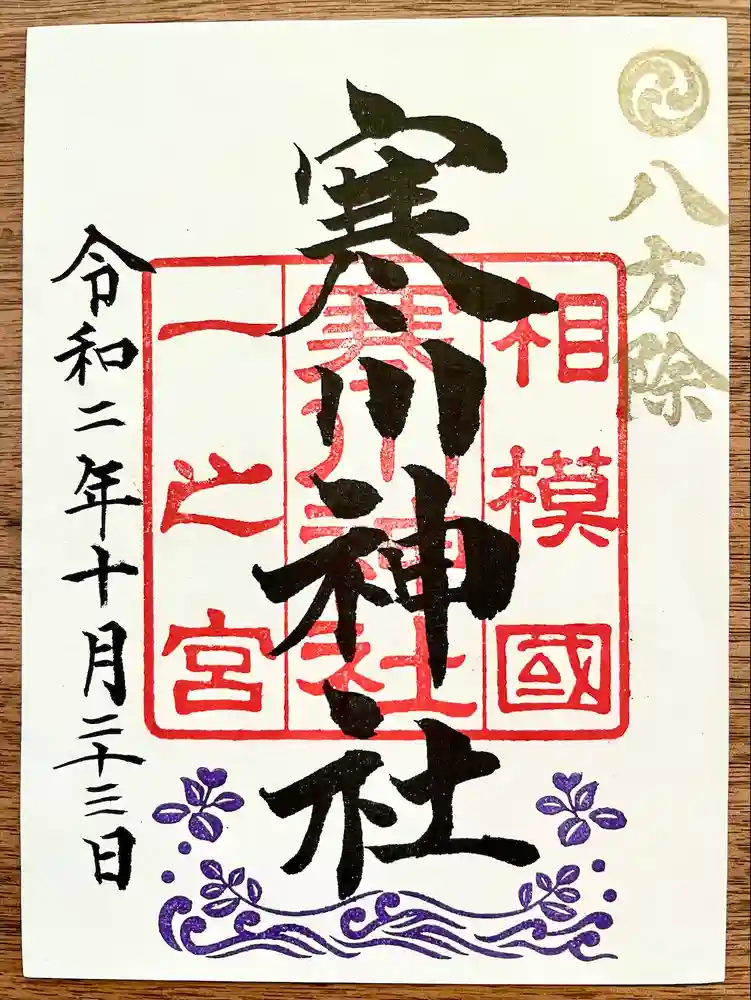 八方除
相模國
寒川神社
一之宮
寒川神社
令和二年十月二十三日